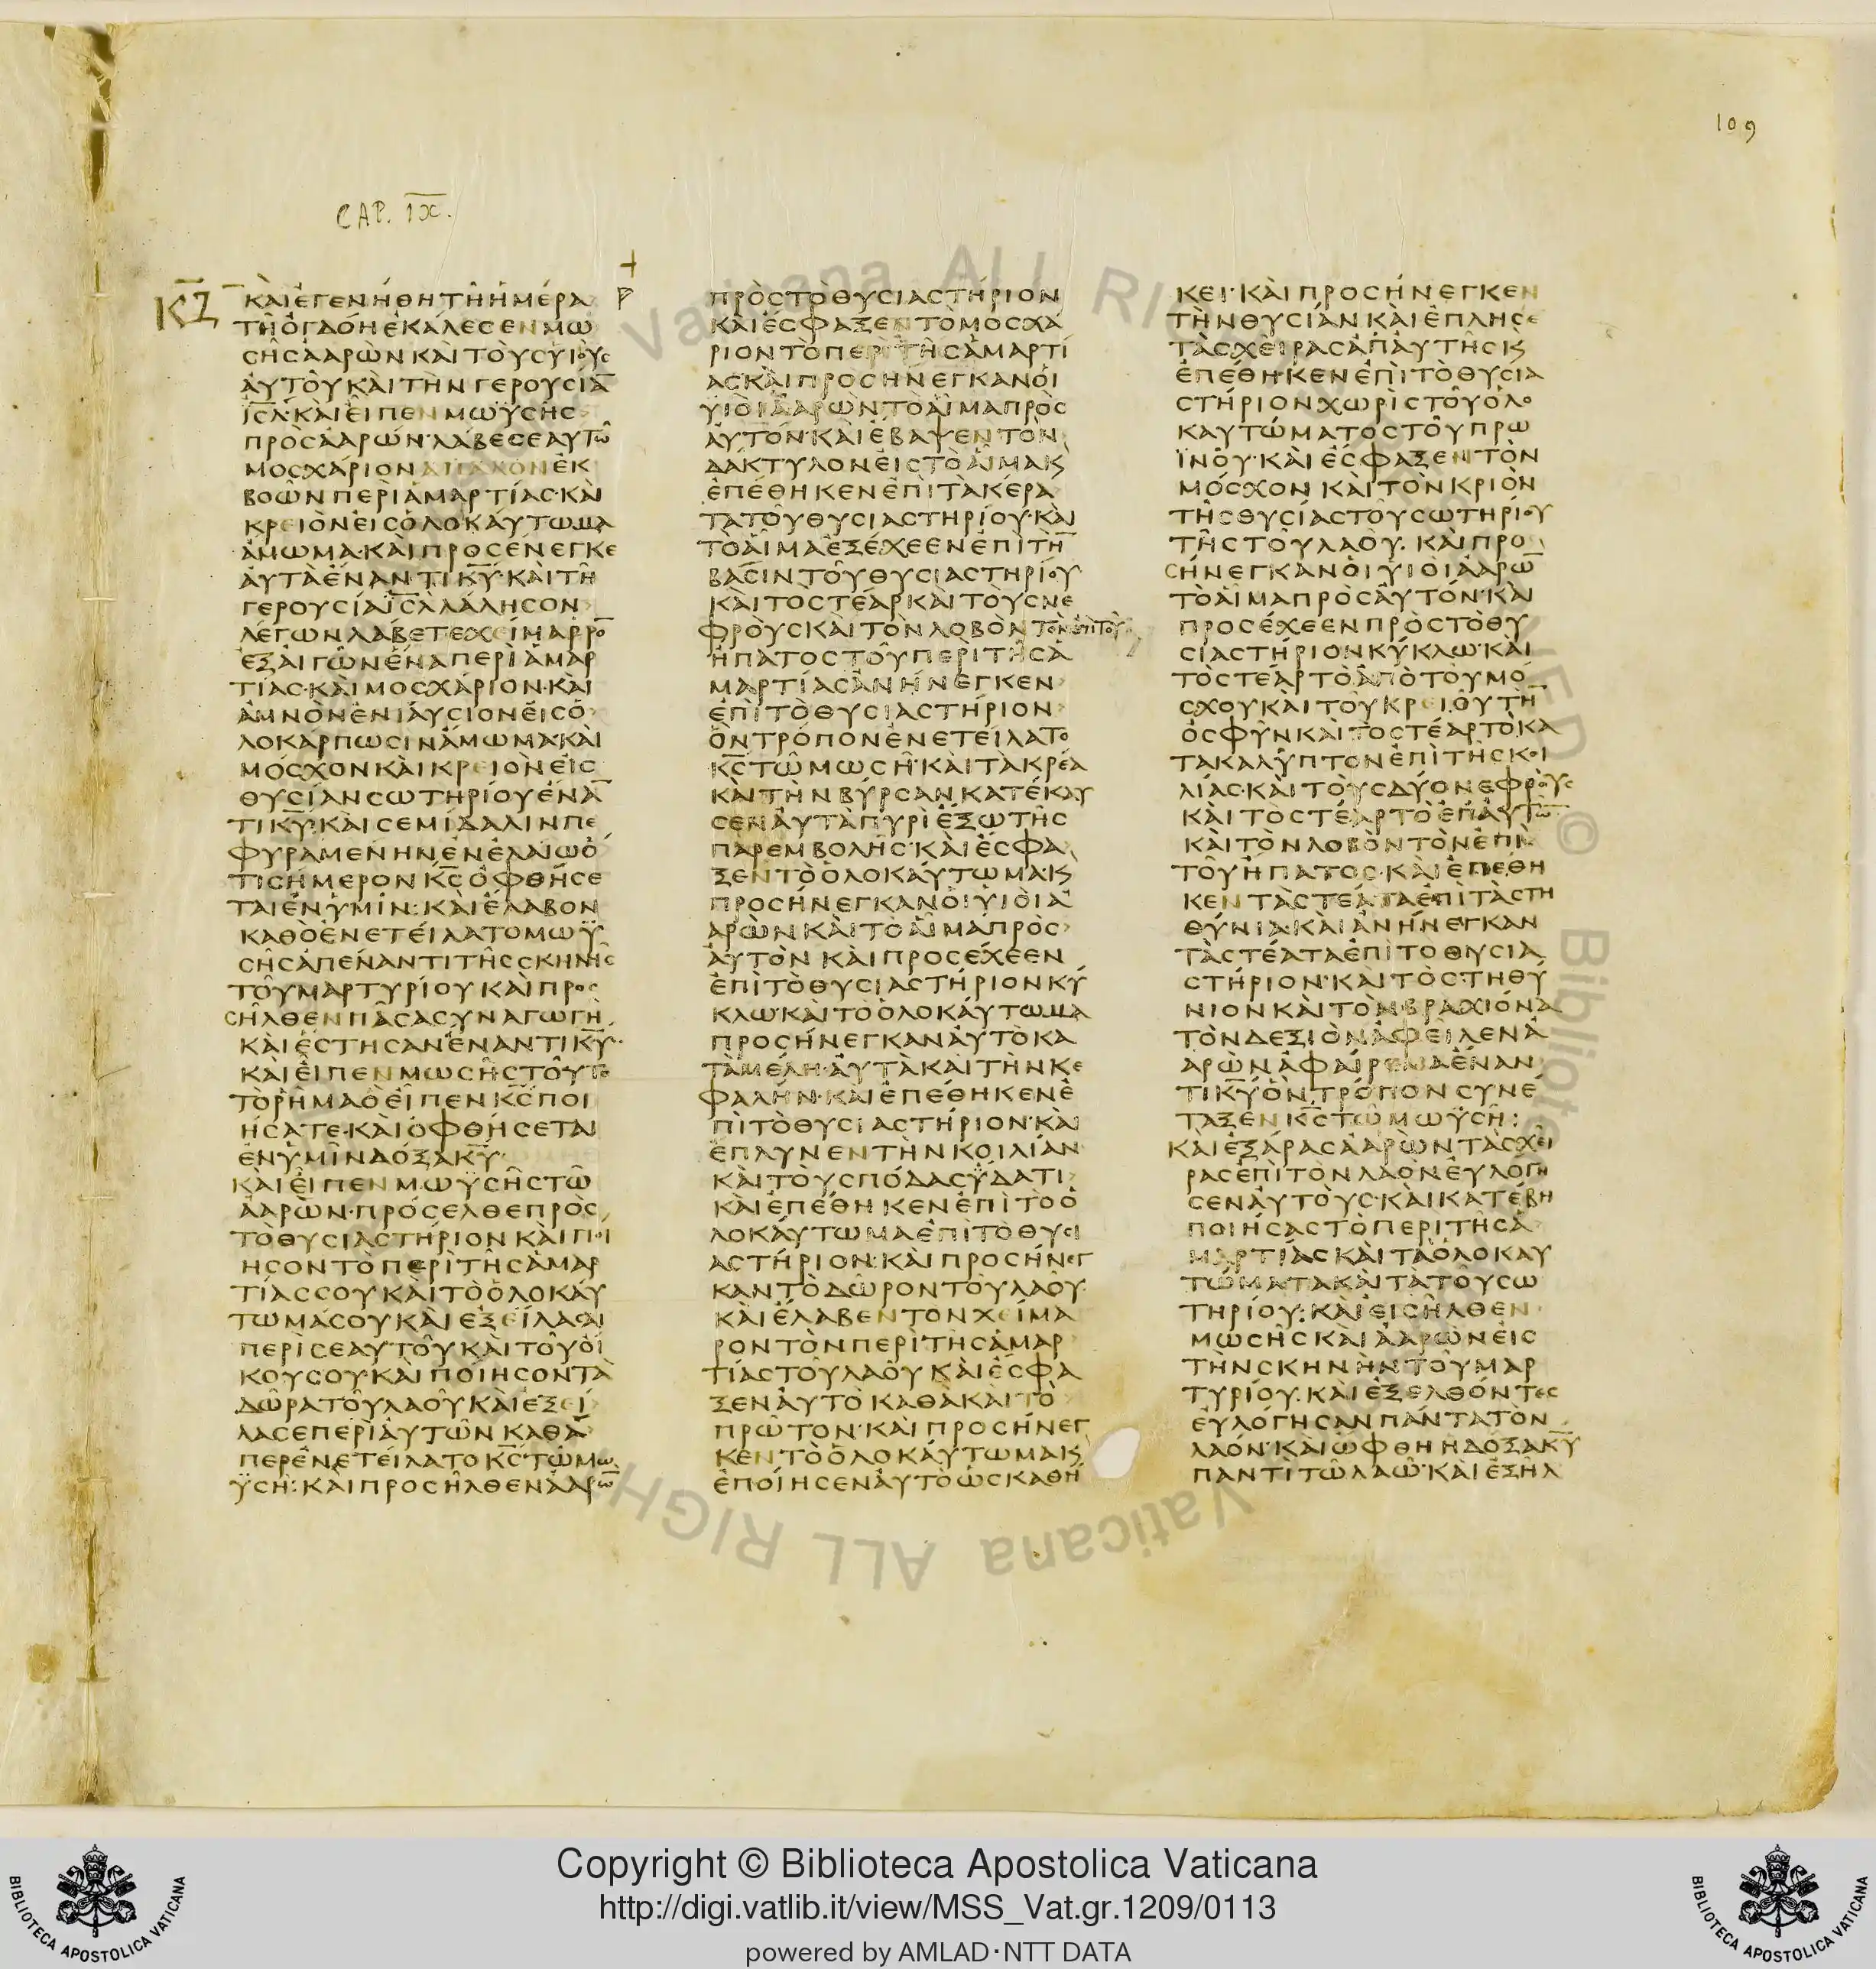 109
CAP. IX.
ΚΖ
ΚΑΙΕΓΕΝΗΘΗΤΗΗΜΕΡΑ
ΤΗΟΓΔΟΗΕΚΑΛΕϹΕΝΜΩ
ϹΗϹΑΑΡΩΝΚΑΙΤΟΥϹΥΙΟΥϹ
ΑΥΤΟΥΚΑΙΤΗΝΓΕΡΟΥϹΙΑ̅
ΙϹ̅Λ·ΚΑΙΕΙΠΕΝΜΩΫϹΗϹ
ΠΡΟϹΑΑΡΩΝ·ΛΑΒΕϹΕΑΥΤΩ
ΜΟϹΧΑΡΙΟΝΑΠΑΛΟΝΕΚ
ΒΟΩΝΠΕΡΙΑΜΑΡΤΙΑϹ·ΚΑΙ
ΚΡΕΙΟΝΕΙϹΟΛΟΚΑΥΤΩΜΑ
ΑΜΩΜΑ·ΚΑΙΠΡΟϹΕΝΕΓΚΕ
ΑΥΤΑΕΝΑΝΤΙΚ̅Υ̅·ΚΑΙΤΗ
ΓΕΡΟΥϹΙΑΙϹ̅ΛΛΑΛΗϹΟΝ
ΛΕΓΩΝΛΑΒΕΤΕΧΕΙΜΑΡΡΟ̅
ΕΞΑΙΓΩΝΕΝΑΠΕΡΙΑΜΑΡ
ΤΙΑϹ·ΚΑΙΜΟϹΧΑΡΙΟΝ·ΚΑΙ
ΑΜΝΟΝΕΝΙΑΥϹΙΟΝΕΙϹΟ
ΛΟΚΑΡΠΩϹΙΝΑΜΩΜΑ·ΚΑΙ
ΜΟϹΧΟΝΚΑΙΚΡΕΙΟΝΕΙϹ
ΘΥϹΙΑΝϹΩΤΗΡΙΟΥΕΝΑ̅
ΤΙΚ̅Υ̅·ΚΑΙϹΕΜΙΔΑΛΙΝΠΕ
ΦΥΡΑΜΕΝΗΝΕΝΕΛΑΙΩΟ
ΤΙϹΗΜΕΡΟΝΚ̅Ϲ̅ΟΦΘΗϹΕ
ΤΑΙΕΝΥΜΙΝ:ΚΑΙΕΛΑΒΟΝ
ΚΑΘΟΕΝΕΤΕΙΛΑΤΟΜΩΫ
ϹΗϹΑΠΕΝΑΝΤΙΤΗϹϹΚΗΝΗϹ
ΤΟΥΜΑΡΤΥΡΙΟΥΚΑΙΠΡΟϹ
ϹΗΛΘΕΝΠΑϹΑϹΥΝΑΓΩΓΗ
ΚΑΙΕϹΤΗϹΑΝΕΝΑΝΤΙΚ̅Υ̅·
ΚΑΙΕΙΠΕΝΜΩϹΗϹΤΟΥΤΟ
ΤΟΡΗΜΑΟΕΙΠΕΝΚ̅Ϲ̅ΠΟΙ
ΗϹΑΤΕ·ΚΑΙΟΦΘΗϹΕΤΑΙ
ΕΝΥΜΙΝΔΟΞΑΚ̅Υ̅·
ΚΑΙΕΙΠΕΝΜΩΫϹΗϹΤΩ
ΑΑΡΩΝ·ΠΡΟϹΕΛΘΕΠΡΟϹ
ΤΟΘΥϹΙΑϹΤΗΡΙΟΝΚΑΙΠΟΙ
ΗϹΟΝΤΟΠΕΡΙΤΗϹΑΜΑΡ
ΤΙΑϹϹΟΥΚΑΙΤΟΟΛΟΚΑΥ
ΤΩΜΑϹΟΥΚΑΙΕΞΕΙΛΑϹΑΙ
ΠΕΡΙϹΕΑΥΤΟΥΚΑΙΤΟΥΟΙ
ΚΟΥϹΟΥΚΑΙΠΟΙΗϹΟΝΤΑ
ΔΩΡΑΤΟΥΛΑΟΥΚΑΙΕΞΕΙ
ΛΑϹΕΠΕΡΙΑΥΤΩΝΚΑΘΑ
ΠΕΡΕΝΕΤΕΙΛΑΤΟΚ̅Ϲ̅ΤΩΜΩ
ΫϹΗ:ΚΑΙΠΡΟϹΗΛΘΕΝΑΑΡΩ̅
ΠΡΟϹΤΟΘΥϹΙΑϹΤΗΡΙΟΝ
ΚΑΙΕϹΦΑΞΕΝΤΟΜΟϹΧΑ
ΡΙΟΝΤΟΠΕΡΙΤΗϹΑΜΑΡΤΙ
ΑϹ·ΚΑΙΠΡΟϹΗΝΕΓΚΑΝΟΙ
ΥΙΟΙΑΑΡΩΝΤΟΑΙΜΑΠΡΟϹ
ΑΥΤΟΝ·ΚΑΙΕΒΑΨΕΝΤΟΝ
ΔΑΚΤΥΛΟΝΕΙϹΤΟΑΙΜΑΚϗ
ΕΠΕΘΗΚΕΝΕΠΙΤΑΚΕΡΑ
ΤΑΤΟΥΘΥϹΙΑϹΤΗΡΙΟΥ·ΚΑΙ
ΤΟΑΙΜΑΕΞΕΧΕΕΝΕΠΙΤΗ̅
ΒΑϹΙΝΤΟΥΘΥϹΙΑϹΤΗΡΙΟΥ
ΚΑΙΤΟϹΤΕΑΡΚΑΙΤΟΥϹΝΕ
ΦΡΟΥϹΚΑΙΤΟΝΛΟΒΟΝΤΟΝΕΠΙΤΟΥ
ΗΠΑΤΟϹΤΟΥΠΕΡΙΤΗϹΑ
ΜΑΡΤΙΑϹΑΝΗΝΕΓΚΕΝ
ΕΠΙΤΟΘΥϹΙΑϹΤΗΡΙΟΝ
ΟΝΤΡΟΠΟΝΕΝΕΤΕΙΛΑΤΟ
Κ̅Ϲ̅ΤΩΜΩϹΗ·ΚΑΙΤΑΚΡΕΑ
ΚΑΙΤΗΝΒΥΡϹΑΝΚΑΤΕΚΑΥ
ϹΕΝΑΥΤΑΠΥΡΙΕΞΩΤΗϹ
ΠΑΡΕΜΒΟΛΗϹ·ΚΑΙΕϹΦΑ
ΞΕΝΤΟΟΛΟΚΑΥΤΩΜΑ·Κϗ
ΠΡΟϹΗΝΕΓΚΑΝΟΙΥΙΟΙΑ
ΑΡΩΝΚΑΙΤΟΑΙΜΑΠΡΟϹ
ΑΥΤΟΝΚΑΙΠΡΟϹΕΧΕΕΝ
ΕΠΙΤΟΘΥϹΙΑϹΤΗΡΙΟΝΚΥ
ΚΛΩ·ΚΑΙΤΟΟΛΟΚΑΥΤΩΜΑ
ΠΡΟϹΗΝΕΓΚΑΝΑΥΤΟΚΑ
ΤΑΜΕΛΗ·ΑΥΤΑΚΑΙΤΗΝΚΕ
ΦΑΛΗΝ·ΚΑΙΕΠΕΘΗΚΕΝΕ
ΠΙΤΟΘΥϹΙΑϹΤΗΡΙΟΝ·ΚΑΙ
ΕΠΛΥΝΕΝΤΗΝΚΟΙΛΙΑΝ
ΚΑΙΤΟΥϹΠΟΔΑϹΫΔΑΤΙ
ΚΑΙΕΠΕΘΗΚΕΝΕΠΙΤΟΟ
ΛΟΚΑΥΤΩΜΑΕΠΙΤΟΘΥϹΙ
ΑϹΤΗΡΙΟΝ:ΚΑΙΠΡΟϹΗΝΕΓ
ΚΑΝΤΟΔΩΡΟΝΤΟΥΛΑΟΥ·
ΚΑΙΕΛΑΒΕΝΤΟΝΧΕΙΜΑ
ΡΟΝΤΟΝΠΕΡΙΤΗϹΑΜΑΡ
ΤΙΑϹΤΟΥΛΑΟΥΚΑΙΕϹΦΑ
ΞΕΝΑΥΤΟΚΑΘΑΚΑΙΤΟ
ΠΡΩΤΟΝ·ΚΑΙΠΡΟϹΗΝΕΓ
ΚΕΝΤΟΟΛΟΚΑΥΤΩΜΑΚϗ
ΕΠΟΙΗϹΕΝΑΥΤΟΩϹΚΑΘΗ
ΚΕΙ·ΚΑΙΠΡΟϹΗΝΕΓΚΕΝ
ΤΗΝΘΥϹΙΑΝΚΑΙΕΠΛΗϹΕ
ΤΑϹΧΕΙΡΑϹΑΠΑΥΤΗϹΚϗ
ΕΠΕΘΗΚΕΝΕΠΙΤΟΘΥϹΙΑ
ϹΤΗΡΙΟΝΧΩΡΙϹΤΟΥΟΛΟ
ΚΑΥΤΩΜΑΤΟϹΤΟΥΠΡΩ
ΪΝΟΥ·ΚΑΙΕϹΦΑΞΕΝΤΟΝ
ΜΟϹΧΟΝΚΑΙΤΟΝΚΡΙΟΝ
ΤΗϹΘΥϹΙΑϹΤΟΥϹΩΤΗΡΙΟΥ
ΤΗϹΤΟΥΛΑΟΥ·ΚΑΙΠΡΟ
ϹΗΝΕΓΚΑΝΟΙΥΙΟΙΑΑΡΩ̅
ΤΟΑΙΜΑΠΡΟϹΑΥΤΟΝ·ΚΑΙ
ΠΡΟϹΕΧΕΕΝΠΡΟϹΤΟΘΥ
ϹΙΑϹΤΗΡΙΟΝΚΥΚΛΩ·ΚΑΙ
ΤΟϹΤΕΑΡΤΟΑΠΟΤΟΥΜΟ
ϹΧΟΥΚΑΙΤΟΥΚΡΕΙΟΥΤΗ̅
ΟϹΦΥΝΚΑΙΤΟϹΤΕΑΡΤΟΚΑ
ΤΑΚΑΛΥΠΤΟΝΕΠΙΤΗϹΚΟΙ
ΛΙΑϹ·ΚΑΙΤΟΥϹΔΥΟΝΕΦΡΟΥϹ
ΚΑΙΤΟϹΤΕΑΡΤΟΕΠΑΥΤΩ̅
ΚΑΙΤΟΝΛΟΒΟΝΤΟΝΕΠΙ
ΤΟΥΗΠΑΤΟϹ·ΚΑΙΕΠΕΘΗ
ΚΕΝΤΑϹΤΕΑΤΑΕΠΙΤΑϹΤΗ
ΘΥΝΙΑ·ΚΑΙΑΝΗΝΕΓΚΑΝ
ΤΑϹΤΕΑΤΑΕΠΙΤΟΘΥϹΙΑ
ϹΤΗΡΙΟΝ·ΚΑΙΤΟϹΤΗΘΥ
ΝΙΟΝΚΑΙΤΟΝΒΡΑΧΙΟΝΑ
ΤΟΝΔΕΞΙΟΝΑΦΕΙΛΕΝΑ
ΑΡΩΝΑΦΑΙΡΕΜΑΕΝΑΝ
ΤΙΚ̅Υ̅ΟΝΤΡΟΠΟΝϹΥΝΕ
ΤΑΞΕΝΚ̅Ϲ̅ΤΩΜΩΫϹΗ:
ΚΑΙΕΞΑΡΑϹΑΑΡΩΝΤΑϹΧΕΙ
ΡΑϹΕΠΙΤΟΝΛΑΟΝΕΥΛΟΓΗ
ϹΕΝΑΥΤΟΥϹ·ΚΑΙΚΑΤΕΒΗ
ΠΟΙΗϹΑϹΤΟΠΕΡΙΤΗϹΑ
ΜΑΡΤΙΑϹΚΑΙΤΑΟΛΟΚΑΥ
ΤΩΜΑΤΑΚΑΙΤΑΤΟΥϹΩ
ΤΗΡΙΟΥ:ΚΑΙΕΙϹΗΛΘΕΝ
ΜΩϹΗϹΚΑΙΑΑΡΩΝΕΙϹ
ΤΗΝϹΚΗΝΗΝΤΟΥΜΑΡ
ΤΥΡΙΟΥ·ΚΑΙΕΞΕΛΘΟΝΤΕϹ
ΕΥΛΟΓΗϹΑΝΠΑΝΤΑΤΟΝ
ΛΑΟΝ·ΚΑΙΩΦΘΗΗΔΟΞΑΚ̅Υ̅
ΠΑΝΤΙΤΩΛΑΩ·ΚΑΙΕΞΗΛ
Copyright © Biblioteca Apostolica Vaticana
http://digi.vatlib.it/view/MSS_Vat.gr.1209/0113
powered by AMLAD·NTT DATA
BIBLIOTECA APOSTOLICA VATICANA
BIBLIOTECA APOSTOLICA VATICANA